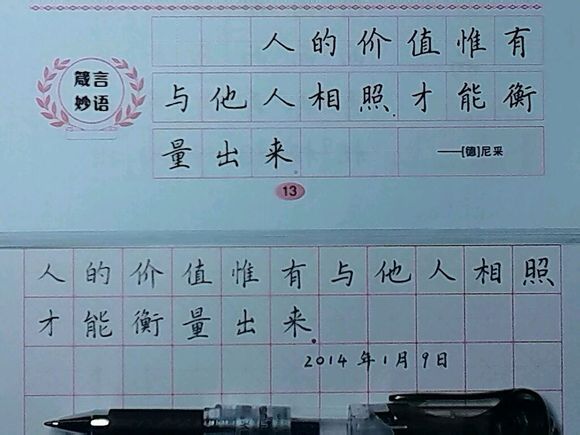 人的价值惟有
箴言
妙语
与他人相照.才能衡
量出来.
——[德]尼采
13
人的价值惟有与他人相照
才能衡量出来.
2014年1月9日